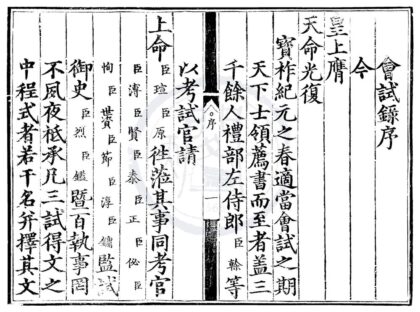 會試錄序
今
皇上膺
天命光復
寶祚紀元之春適當會試之期
天下士領薦書而至者蓋三
千餘人禮部左侍郎臣榦等
序
一
以考試官請
上命臣瑄臣原徃蒞其事同考官
臣溥臣賢臣泰臣正臣宓臣
恂臣世賚臣節臣淳臣鏞監試
御史臣烈臣鑑暨百執事罔
不夙夜祗承凡三試得文之
中程式者若干名并擇其文